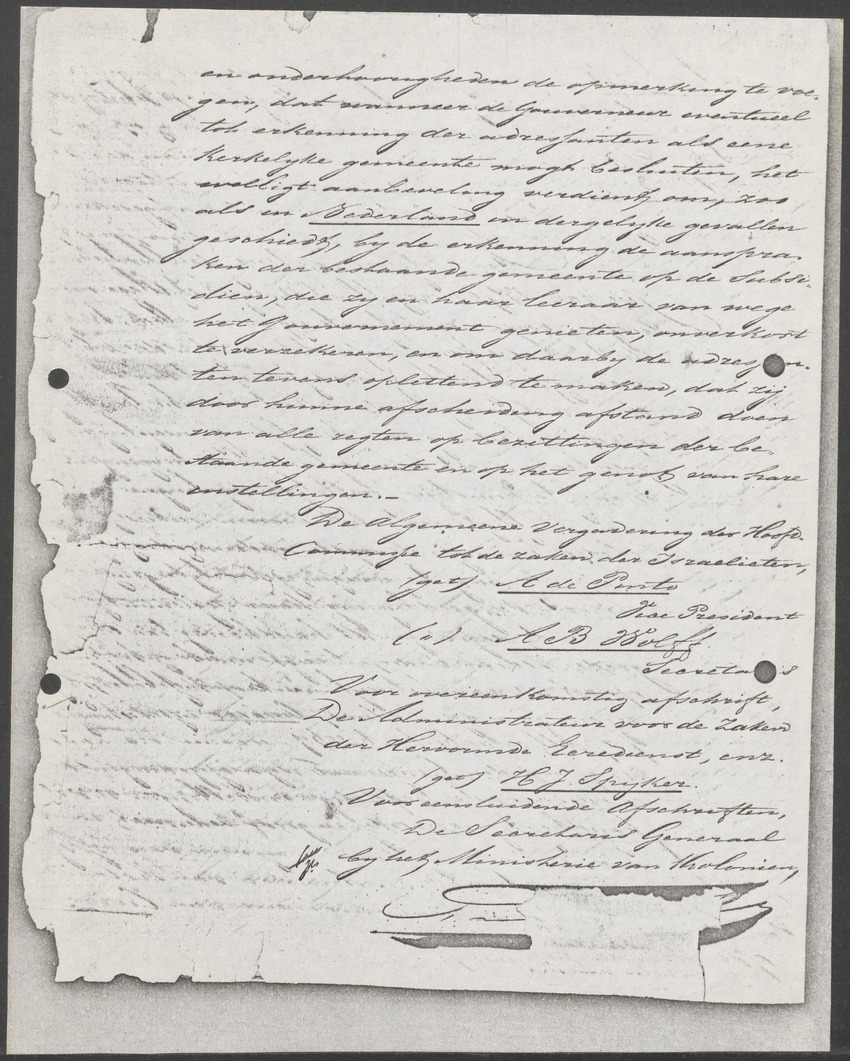 en onderhoorigheden de opmerking te voe-
gen, dat wanneer de Gouverneur eventueel
tot erkenning der adressanten als eene
kerkelyke gemeente mogt besluiten, het
welligt aanbeveling verdient om, zoo
als in Nederland in dergelyke gevallen
geschiedt, by de erkenning de aanspra-
ken der bestaande gemeente op de Subsi-
dien, die zy en haar leeraar van wege
het Gouvernement genieten, onverkort
te verzekeren, en om daarby de adres
ten tevens oplettend te maken, dat zij
door hunne afscheiding afstand doen
van alle regten op bezittingen der be-
staande gemeente en op het genot van hare
instellingen.-
De Algemeene Vergadering der Hoofd-
Commissie tot de zaken der Israelieten,
(get) A de Pinto
Vice President
(") A B Wolff
Secreta s
Voor overeenkomstig afschrift,
De Administrateur voor de Zaken
der Hervormde Eeredienst, enz.
(get) H J Spyker.
Voor eensluidende Afschriften,
De Secretaris Generaal
by het Ministerie van Kolonien,